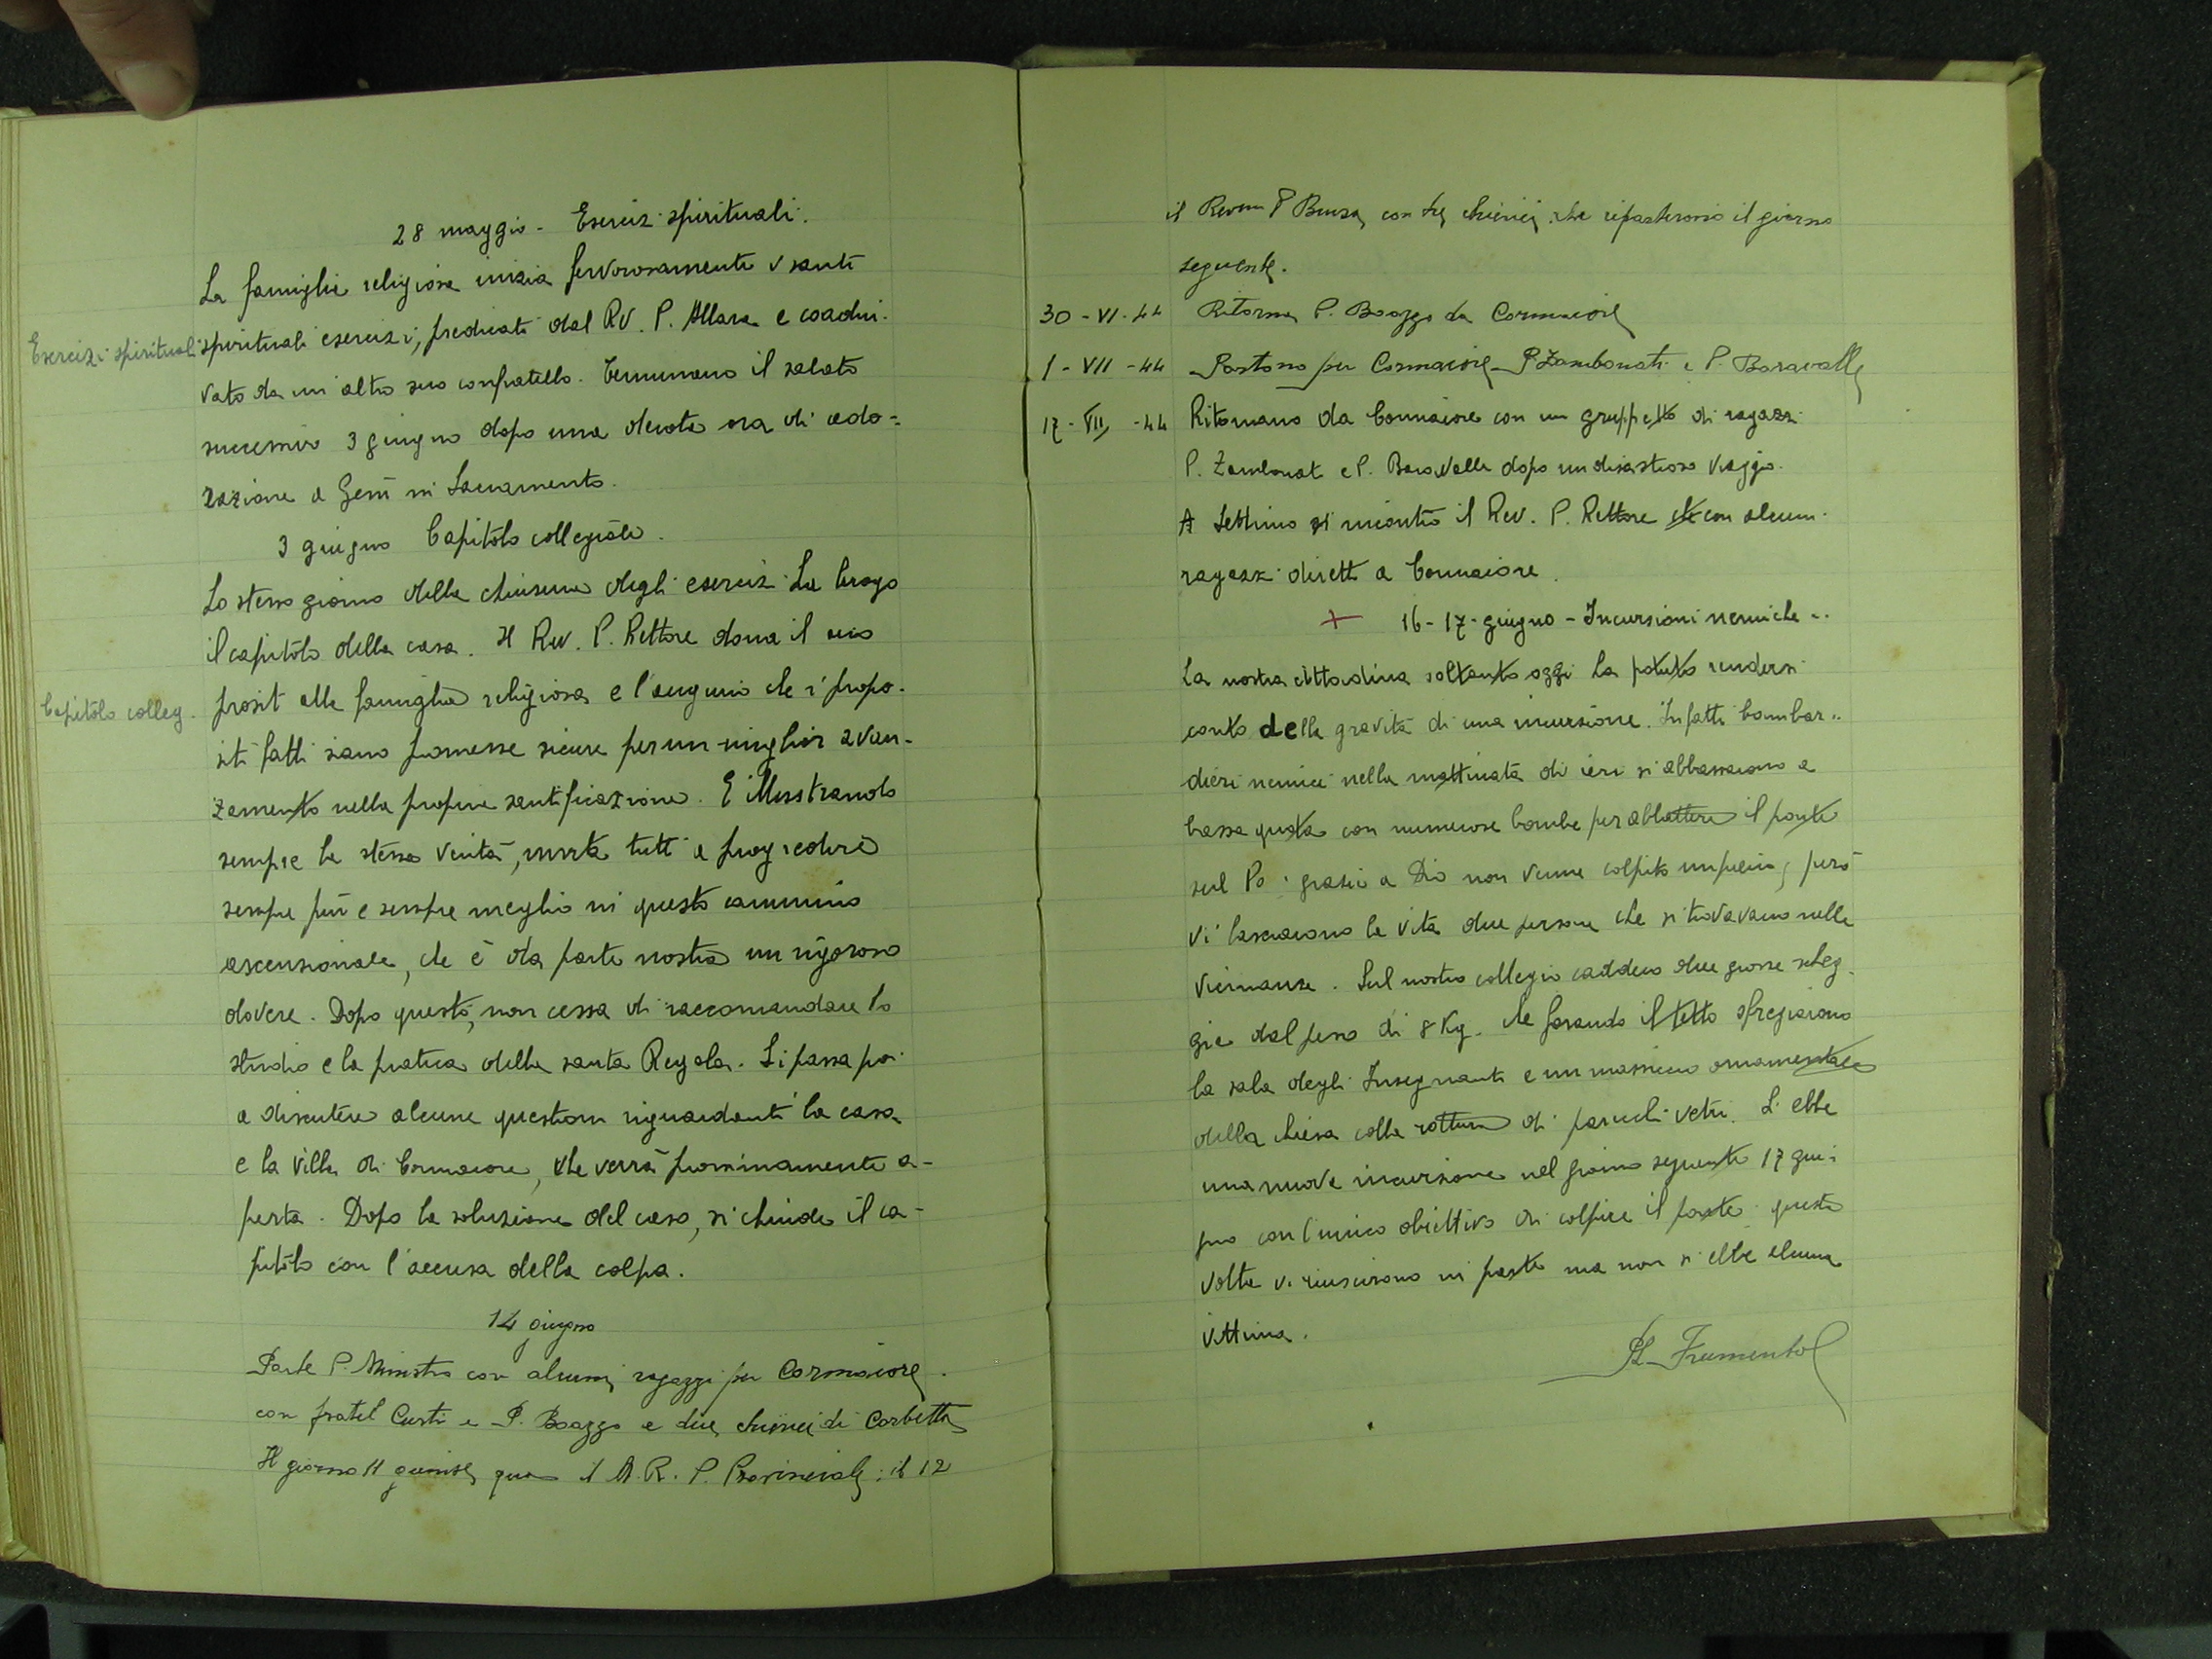 28 maggio - Esercizi spirituali.
La famiglia religiosa inizia fervorosamente i santi
Esercizi spirituali
spirituali esercizi, predicati dal RV. P. Allara e coadiu-
vato da un altro suo confratello. Terminano il sabato
successivo 3 giugno dopo una devota ora di ado=
razione a Gesù in Sacramento.
3 giugno Capitolo collegiale.
Lo stesso giorno della chiusura degli esercizi ha luogo
il capitolo della casa. Il Rev. P. Rettore dona il suo
Capitolo colleg.
prosit alla famiglia religiosa e l'augurio che i propo-
siti fatti siano promesse sicure per un miglior avan-
zamento nella propria santificazione. E illustrando
sempre la stessa verità, invita tutti a progredire
sempre più e sempre meglio in questo cammino
ascensionale, che è da parte nostra un rigoroso
dovere. Dopo questo, non cessa di raccomandare lo
studio e la pratica della santa Regola. Si passa poi
a discutere alcune questioni riguardanti la casa
e la villa di Cormaiore, che verrà prossimamente a-
perta. Dopo la soluzione del caso, si chiude il ca-
pitolo con l'accusa della colpa.
14 giugno
Parte P. Ministro con alcuni ragazzi per Cormaiore.
con fratel Curti e P. Boazzo e due chierici di Corbetta
Il giorno 11 giunse qua il M. R. P. Provinciale; il 12
il Revmo P con tre chierici che ripartirono il giorno
seguente.
30 - VI - 44 Ritorna P. Boazzo da Cormaiore
1 - VII - 44 Partono per Cormaiore P. Zambonati e P. Baravalle
17 - VII - 44 Ritornano da Cormaiore con un gruppetto di ragazzi
P. Zambonati e P. Baravalle dopo un disastroso viaggio.
A Settimo si incontrò il Rev. P. Rettore che con alcuni
ragazzi diretti a Cormaiore.
+ 16 - 17 - giugno - Incursioni nemiche..
La nostra cittadina soltanto oggi ha potuto rendersi
conto della gravità di una incursione. Infatti bombar..
dieri nemici nella mattinata di ieri si abbassarono a
bassa quota con numerose bombe per abbattere il ponte
sul Po: grazie a Dio non venne colpito in pieno, però
vi lasciarono la vita due persone che si trovavano nelle
vicinanze. Sul nostro collegio caddero due grosse scheg-
gie dal peso di 8 Kg. che forando il tetto sfregiarono
la sala degli Insegnanti e un massiccio ornamentale
della chiesa colla rottura di parecchi vetri. Si ebbe
una nuova incursione nel giorno seguente 17 giu-
gno con l'unico obiettivo di colpire il ponte: questa
volta vi riuscirono in parte ma non si ebbe alcuna
vittima.
Frumento